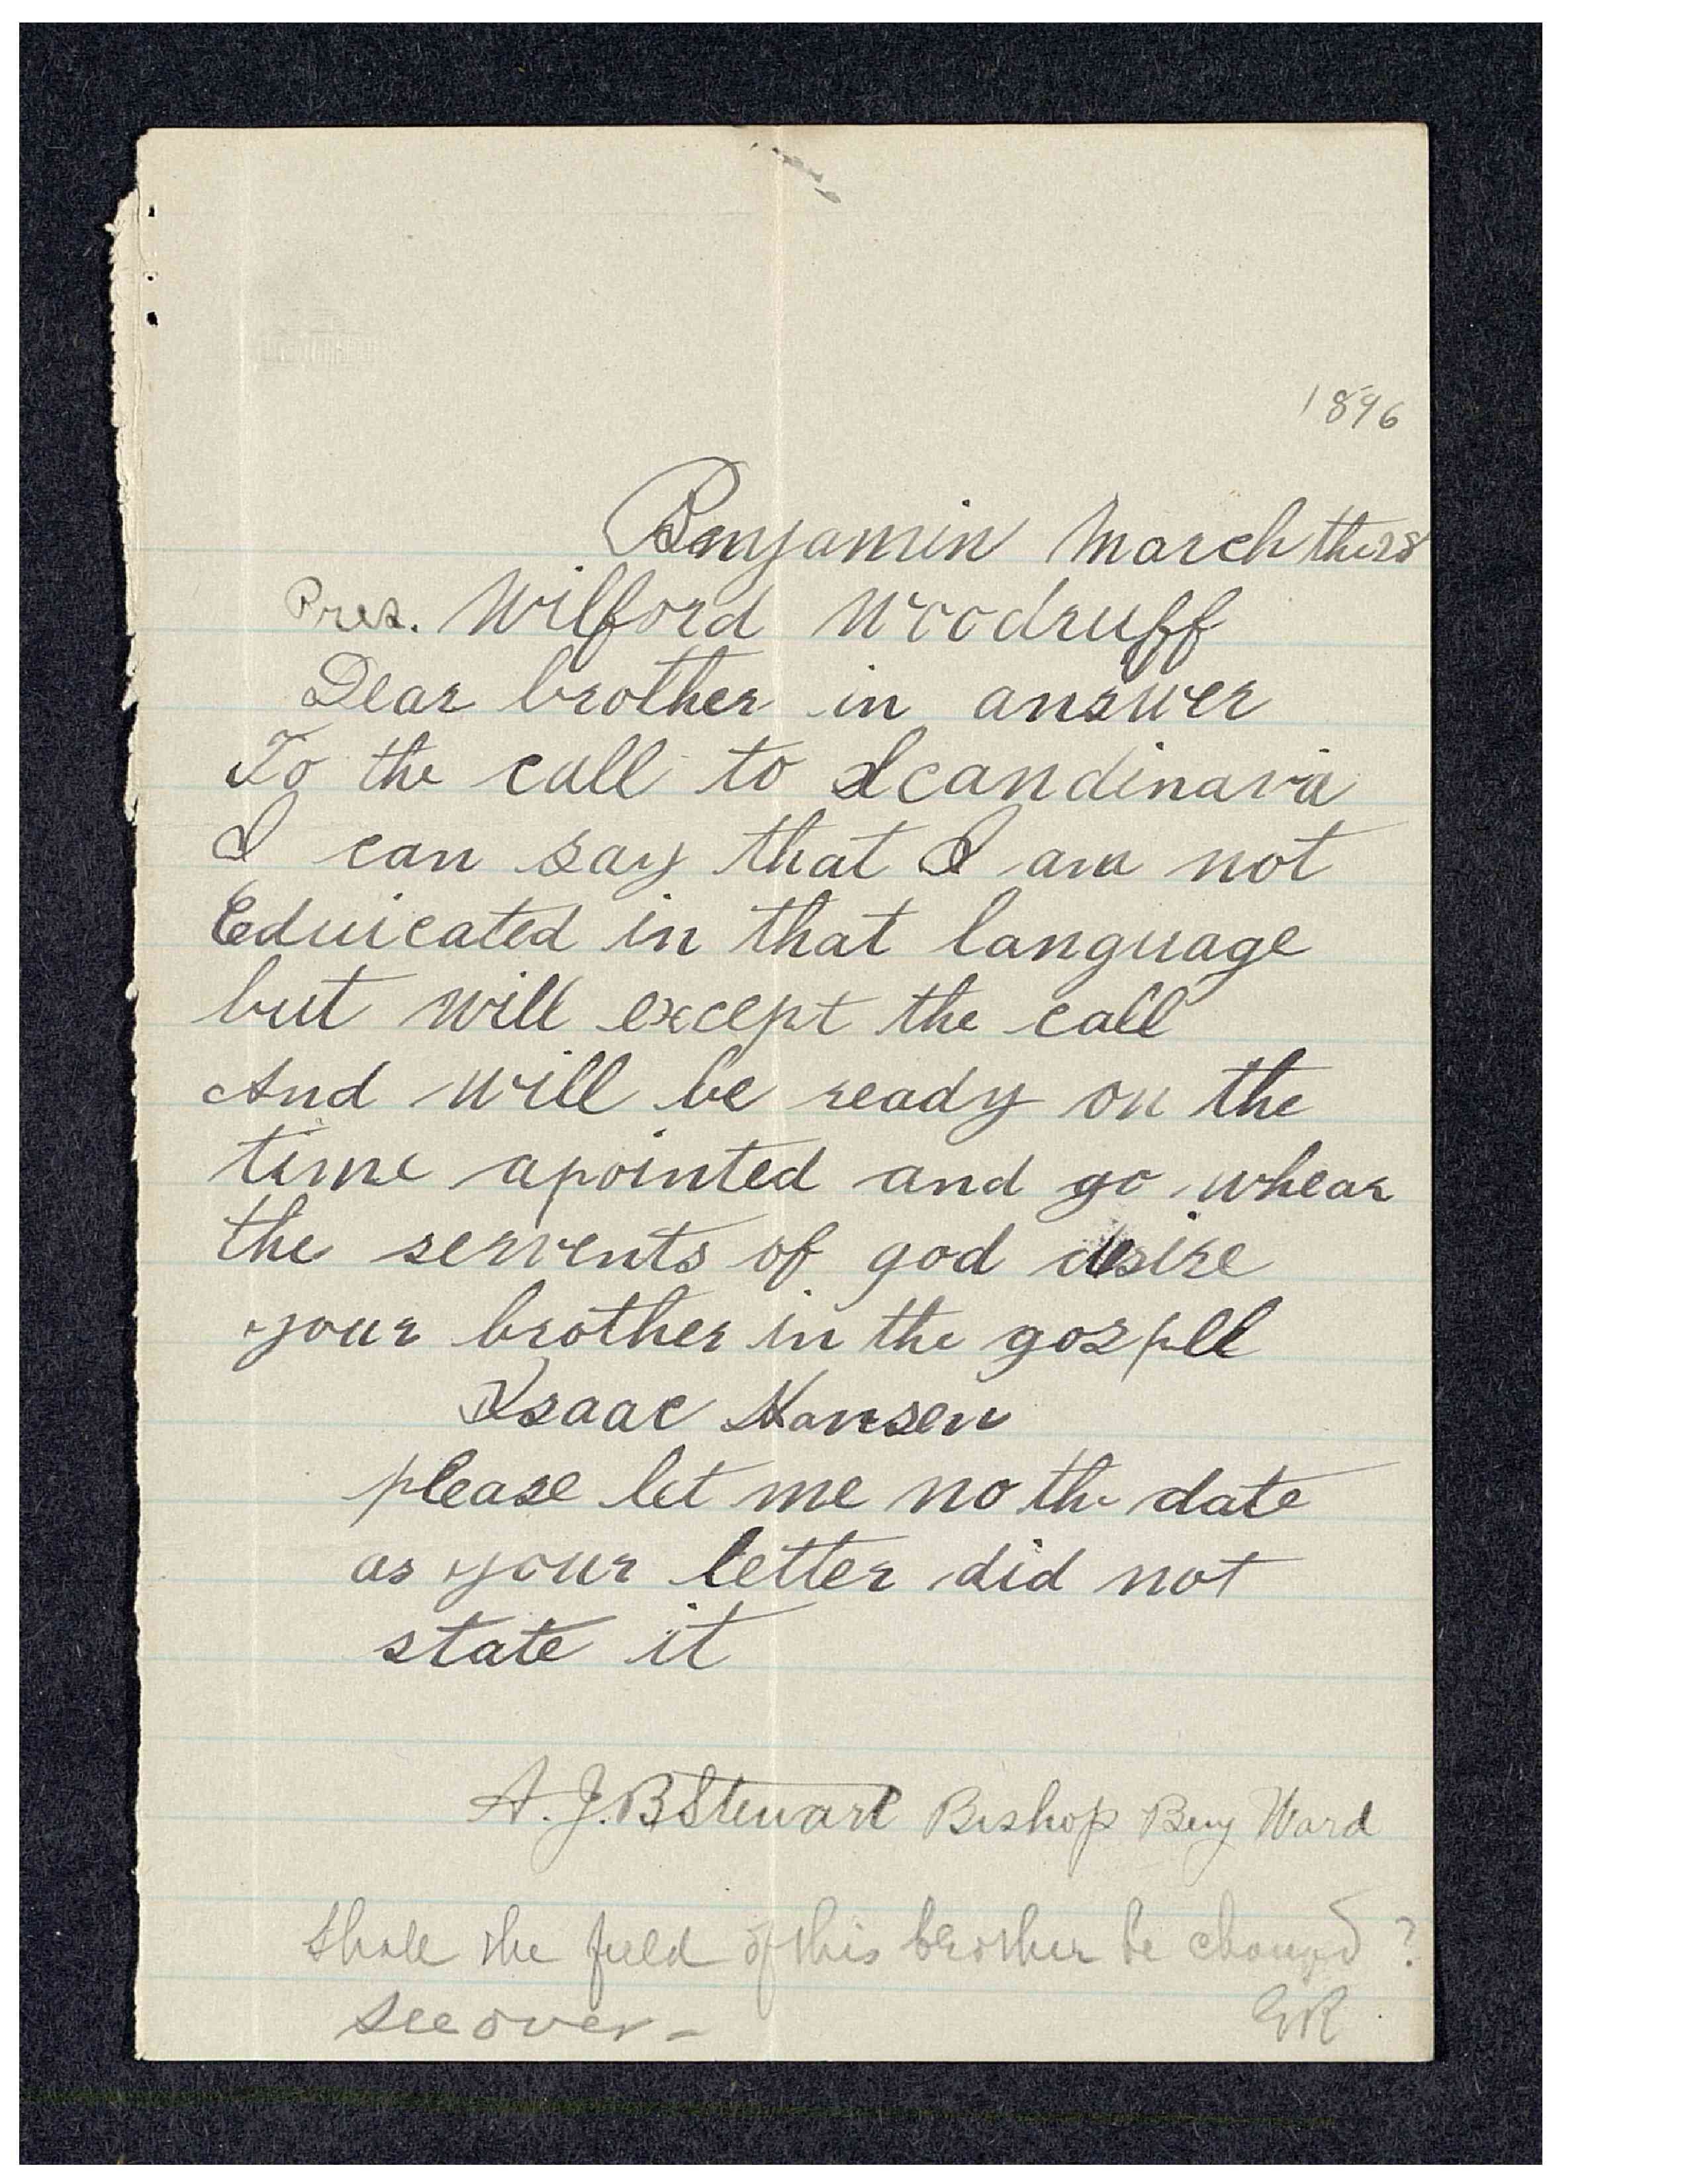 1896
Benjamin March the 28
Pres. Wilford Woodruff
Dear brother in answer
To the call to Scandinavia
I can say that I am not
Eduicated in that language
but will except the call
And will be ready on the
time apointed and go whear
the servents of god desire
your brother in the gospell
Isaac Hansen
please let me no the date
as your letter did not
state it
A. J. B Stewart Bishop Benj Ward
Shall the field of this brother be changed?
see over - GR